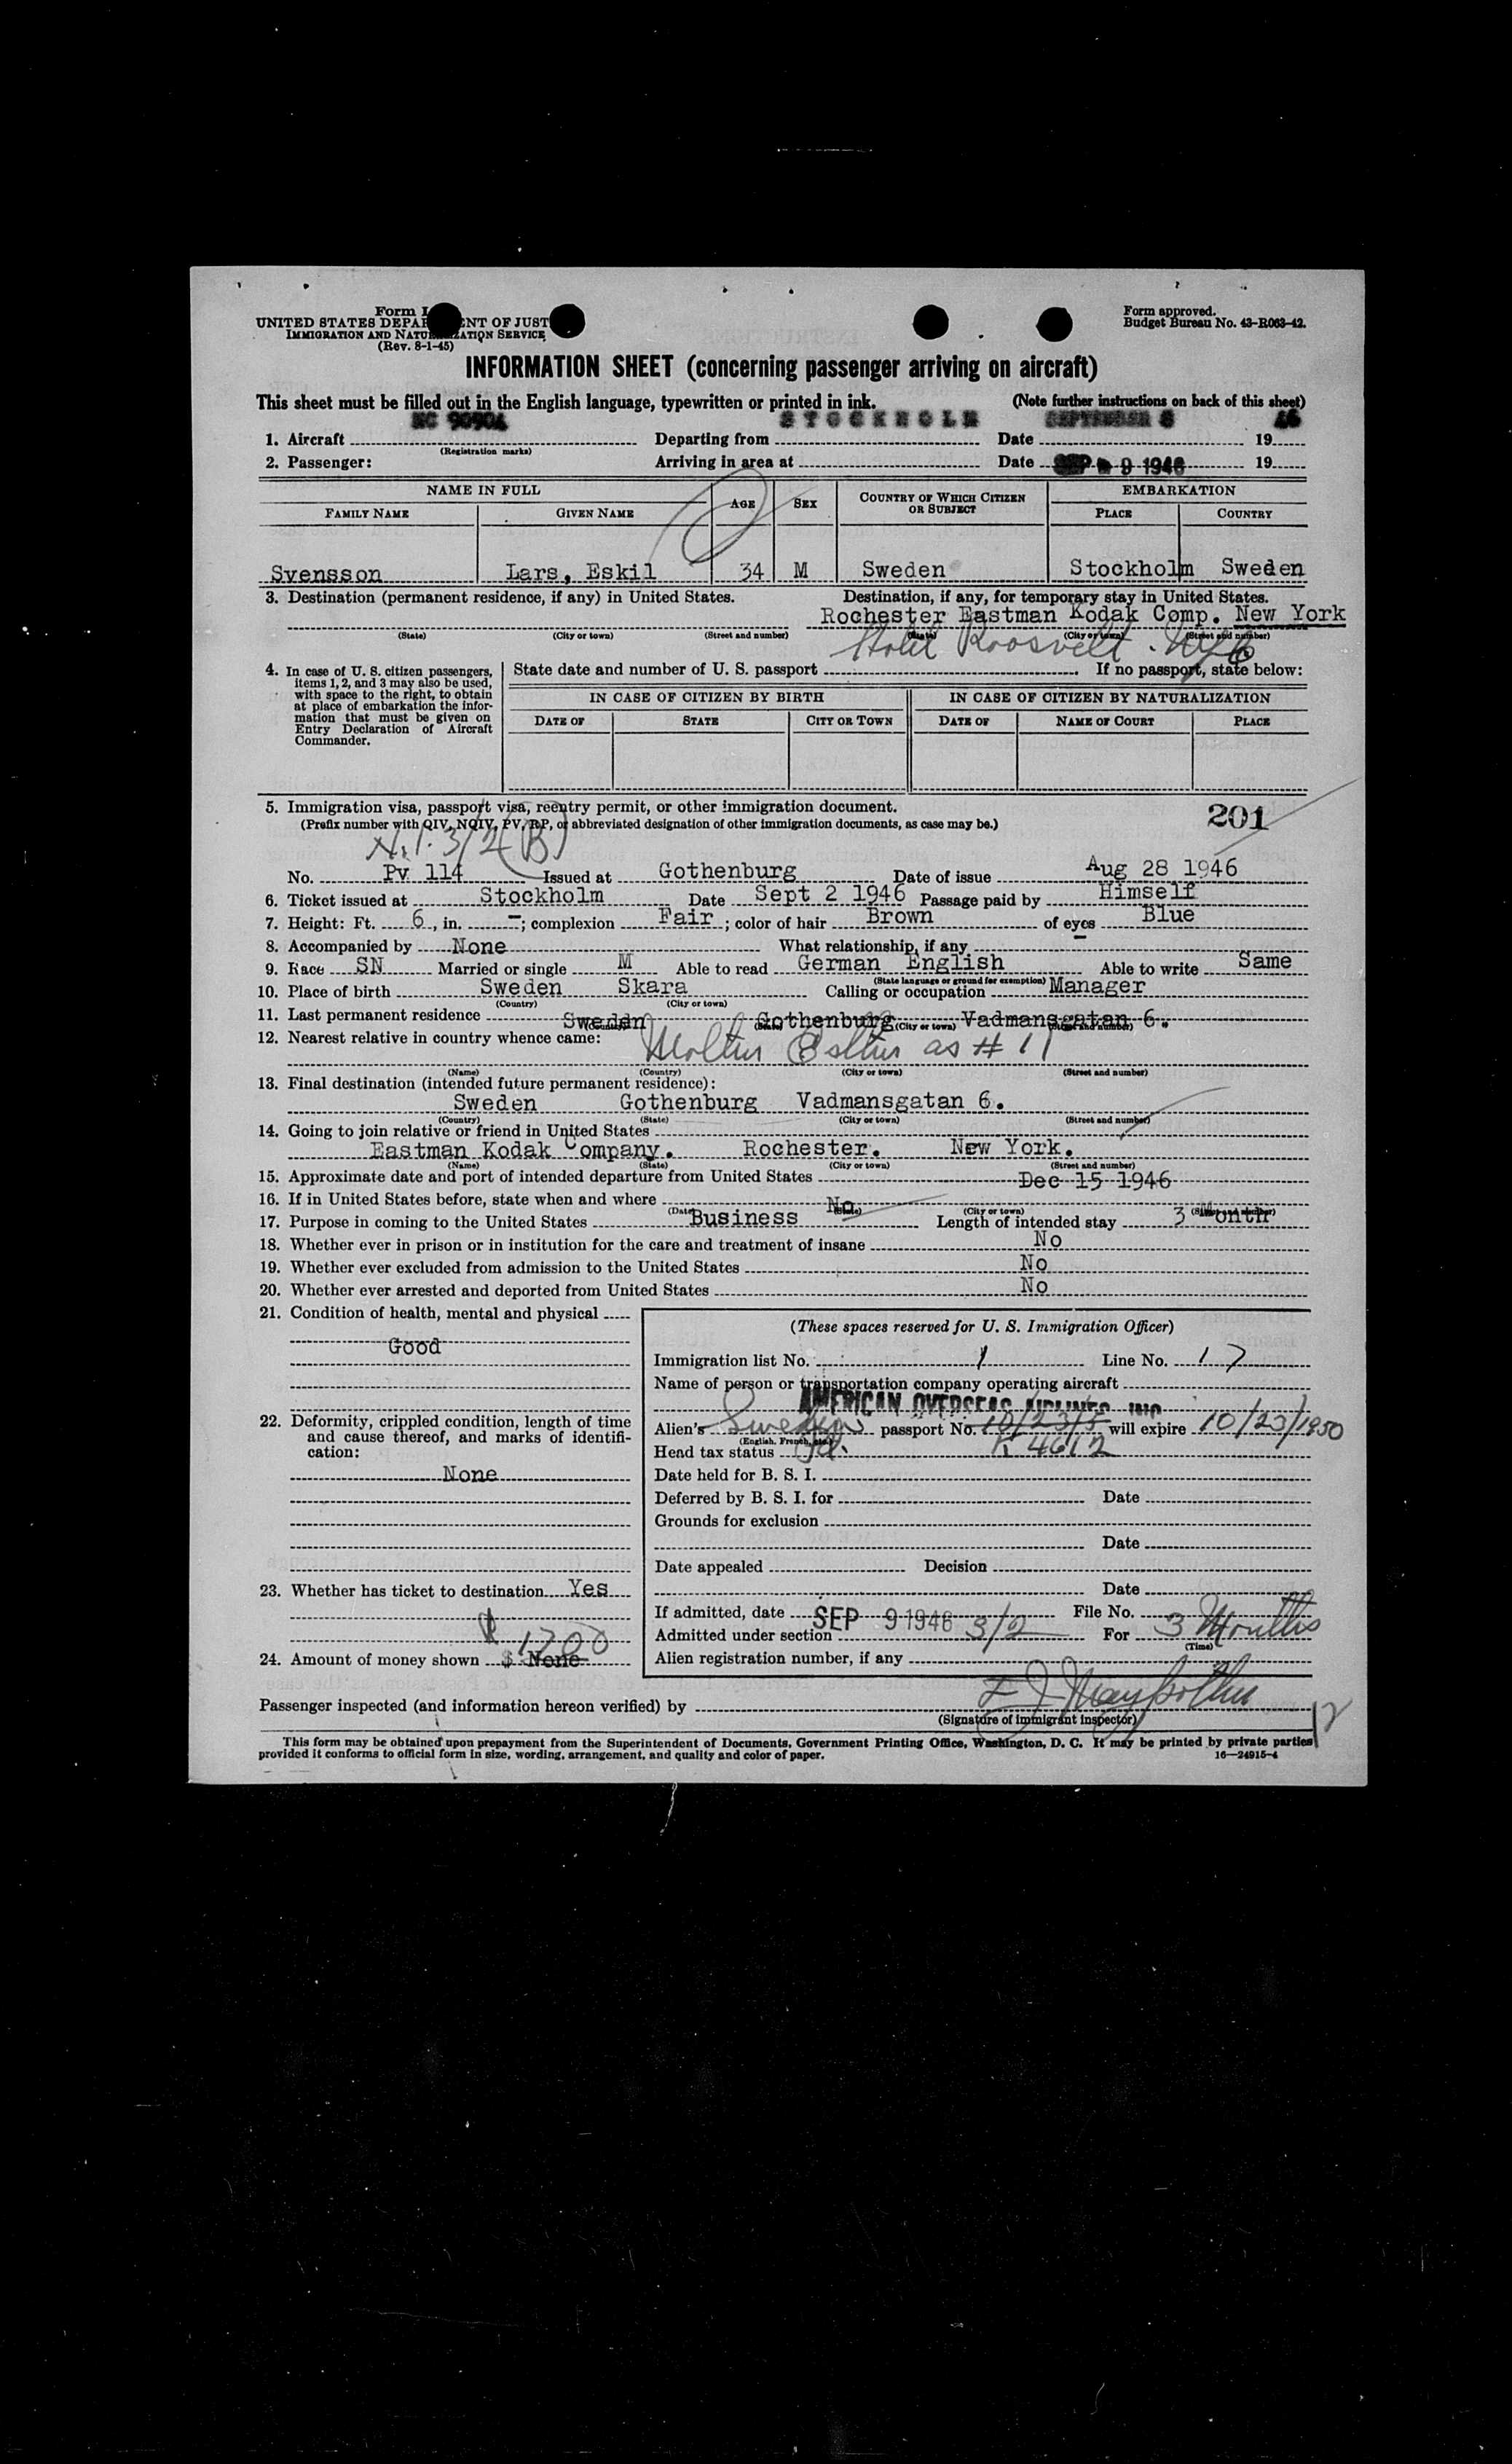 Form I
UNITED STATES DEPA NT OF JUST
IMMIGRATION AND NATU ZATION SERVICE
(Rev. 8-1-45)
Form approved.
Budget Bureau No. 43-R063-42.
INFORMATION SHEET (concerning passenger arriving on aircraft)
This sheet must be filled out in the English language, typewritten or printed in ink. (Note further instructions on back of this sheet)
1. Aircraft NC 90904 Departing from STOCKHOLM Date SEPTEMBER 8 19 46
(Registration marks)
2. Passenger: Arriving in area at Date SEP 9 1946 19
NAME IN FULL AGE SEX COUNTRY OF WHICH CITIZEN OR SUBJECT EMBARKATION
FAMILY NAME GIVEN NAME PLACE COUNTRY
Svensson Lars, Eskil 34 M Sweden Stockholm Sweden
3. Destination (permanent residence, if any) in United States. Destination, if any, for temporary stay in United States.
Rochester Eastman Kodak Comp. New York
(State) (City or town) (Street and number) (State) (City or town) (Street and number)
Hotel Roosvelt. NYC
4. In case of U. S. citizen passengers, items 1, 2, and 3 may also be used, with space to the right, to obtain at place of embarkation the information that must be given on Entry Declaration of Aircraft Commander.
State date and number of U. S. passport If no passport, state below:
IN CASE OF CITIZEN BY BIRTH IN CASE OF CITIZEN BY NATURALIZATION
DATE OF STATE CITY OR TOWN DATE OF NAME OF COURT PLACE
5. Immigration visa, passport visa, reentry permit, or other immigration document. 201
(Prefix number with QIV, NQIV, PV, RP, or abbreviated designation of other immigration documents, as case may be.)
3/2 (B)
No. Pv 114 Issued at Gothenburg Date of issue Aug 28 1946
6. Ticket issued at Stockholm Date Sept 2 1946 Passage paid by Himself
7. Height: Ft. 6, in. -; complexion Fair; color of hair Brown of eyes Blue
8. Accompanied by None What relationship, if any -
9. Race SN Married or single M Able to read German English Able to write Same
(State language or ground for exemption)
10. Place of birth Sweden Skara Calling or occupation Manager
(Country) (City or town)
11. Last permanent residence Sweden Gothenburg Vadmansgatan 6.
(Country) (State) (City or town) (Street and number)
12. Nearest relative in country whence came: Mother Esther as # 11
(Name) (Country) (City or town) (Street and number)
13. Final destination (intended future permanent residence):
Sweden Gothenburg Vadmansgatan 6.
(Country) (State) (City or town) (Street and number)
14. Going to join relative or friend in United States
Eastman Kodak Company. Rochester. New York.
(Name) (State) (City or town) (Street and number)
15. Approximate date and port of intended departure from United States Dec 15 1946
16. If in United States before, state when and where No
(Date) (State) (City or town) (Street and number)
17. Purpose in coming to the United States Business Length of intended stay 3 Month
18. Whether ever in prison or in institution for the care and treatment of insane No
19. Whether ever excluded from admission to the United States No
20. Whether ever arrested and deported from United States No
21. Condition of health, mental and physical
Good
22. Deformity, crippled condition, length of time and cause thereof, and marks of identification:
None
23. Whether has ticket to destination Yes
$ 1200
24. Amount of money shown $ None
(These spaces reserved for U. S. Immigration Officer)
Immigration list No. 1 Line No. 17
Name of person or transportation company operating aircraft
AMERICAN OVERSEAS AIRLINES INC
Alien's Swedish passport No. 10/23/5 will expire 10/23/1950
(English, French, etc.)
Head tax status K 4612
Date held for B. S. I.
Deferred by B. S. I. for Date
Grounds for exclusion
Date
Date appealed Decision
Date
If admitted, date SEP 9 1946 File No.
Admitted under section 3/2 For 3 Months
(Time)
Alien registration number, if any
Passenger inspected (and information hereon verified) by
(Signature of immigrant inspector)
12
This form may be obtained upon prepayment from the Superintendent of Documents, Government Printing Office, Washington, D. C. It may be printed by private parties
provided it conforms to official form in size, wording, arrangement, and quality and color of paper. 16—24915-4